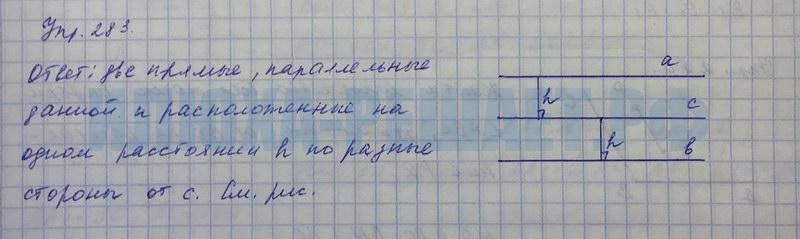 Упр. 283.
Ответ: две прямые, параллельные
данной и расположенные на
одном расстоянии h по разные
стороны от с. См. рис.
a
h
c
h
b